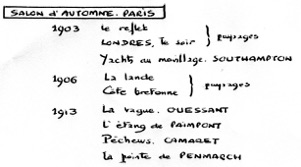 SALON d'AUTOMNE. PARIS
1903 Le reflet
LONDRES, le soir } paysages
Yachts au mouillage. SOUTHAMPTON
1906 La lande
Côte bretonne } paysages
1913 La vague. OUESSANT
L'étang de PAIMPONT
Pêcheurs. CAMARET
La pointe de PENMARCH